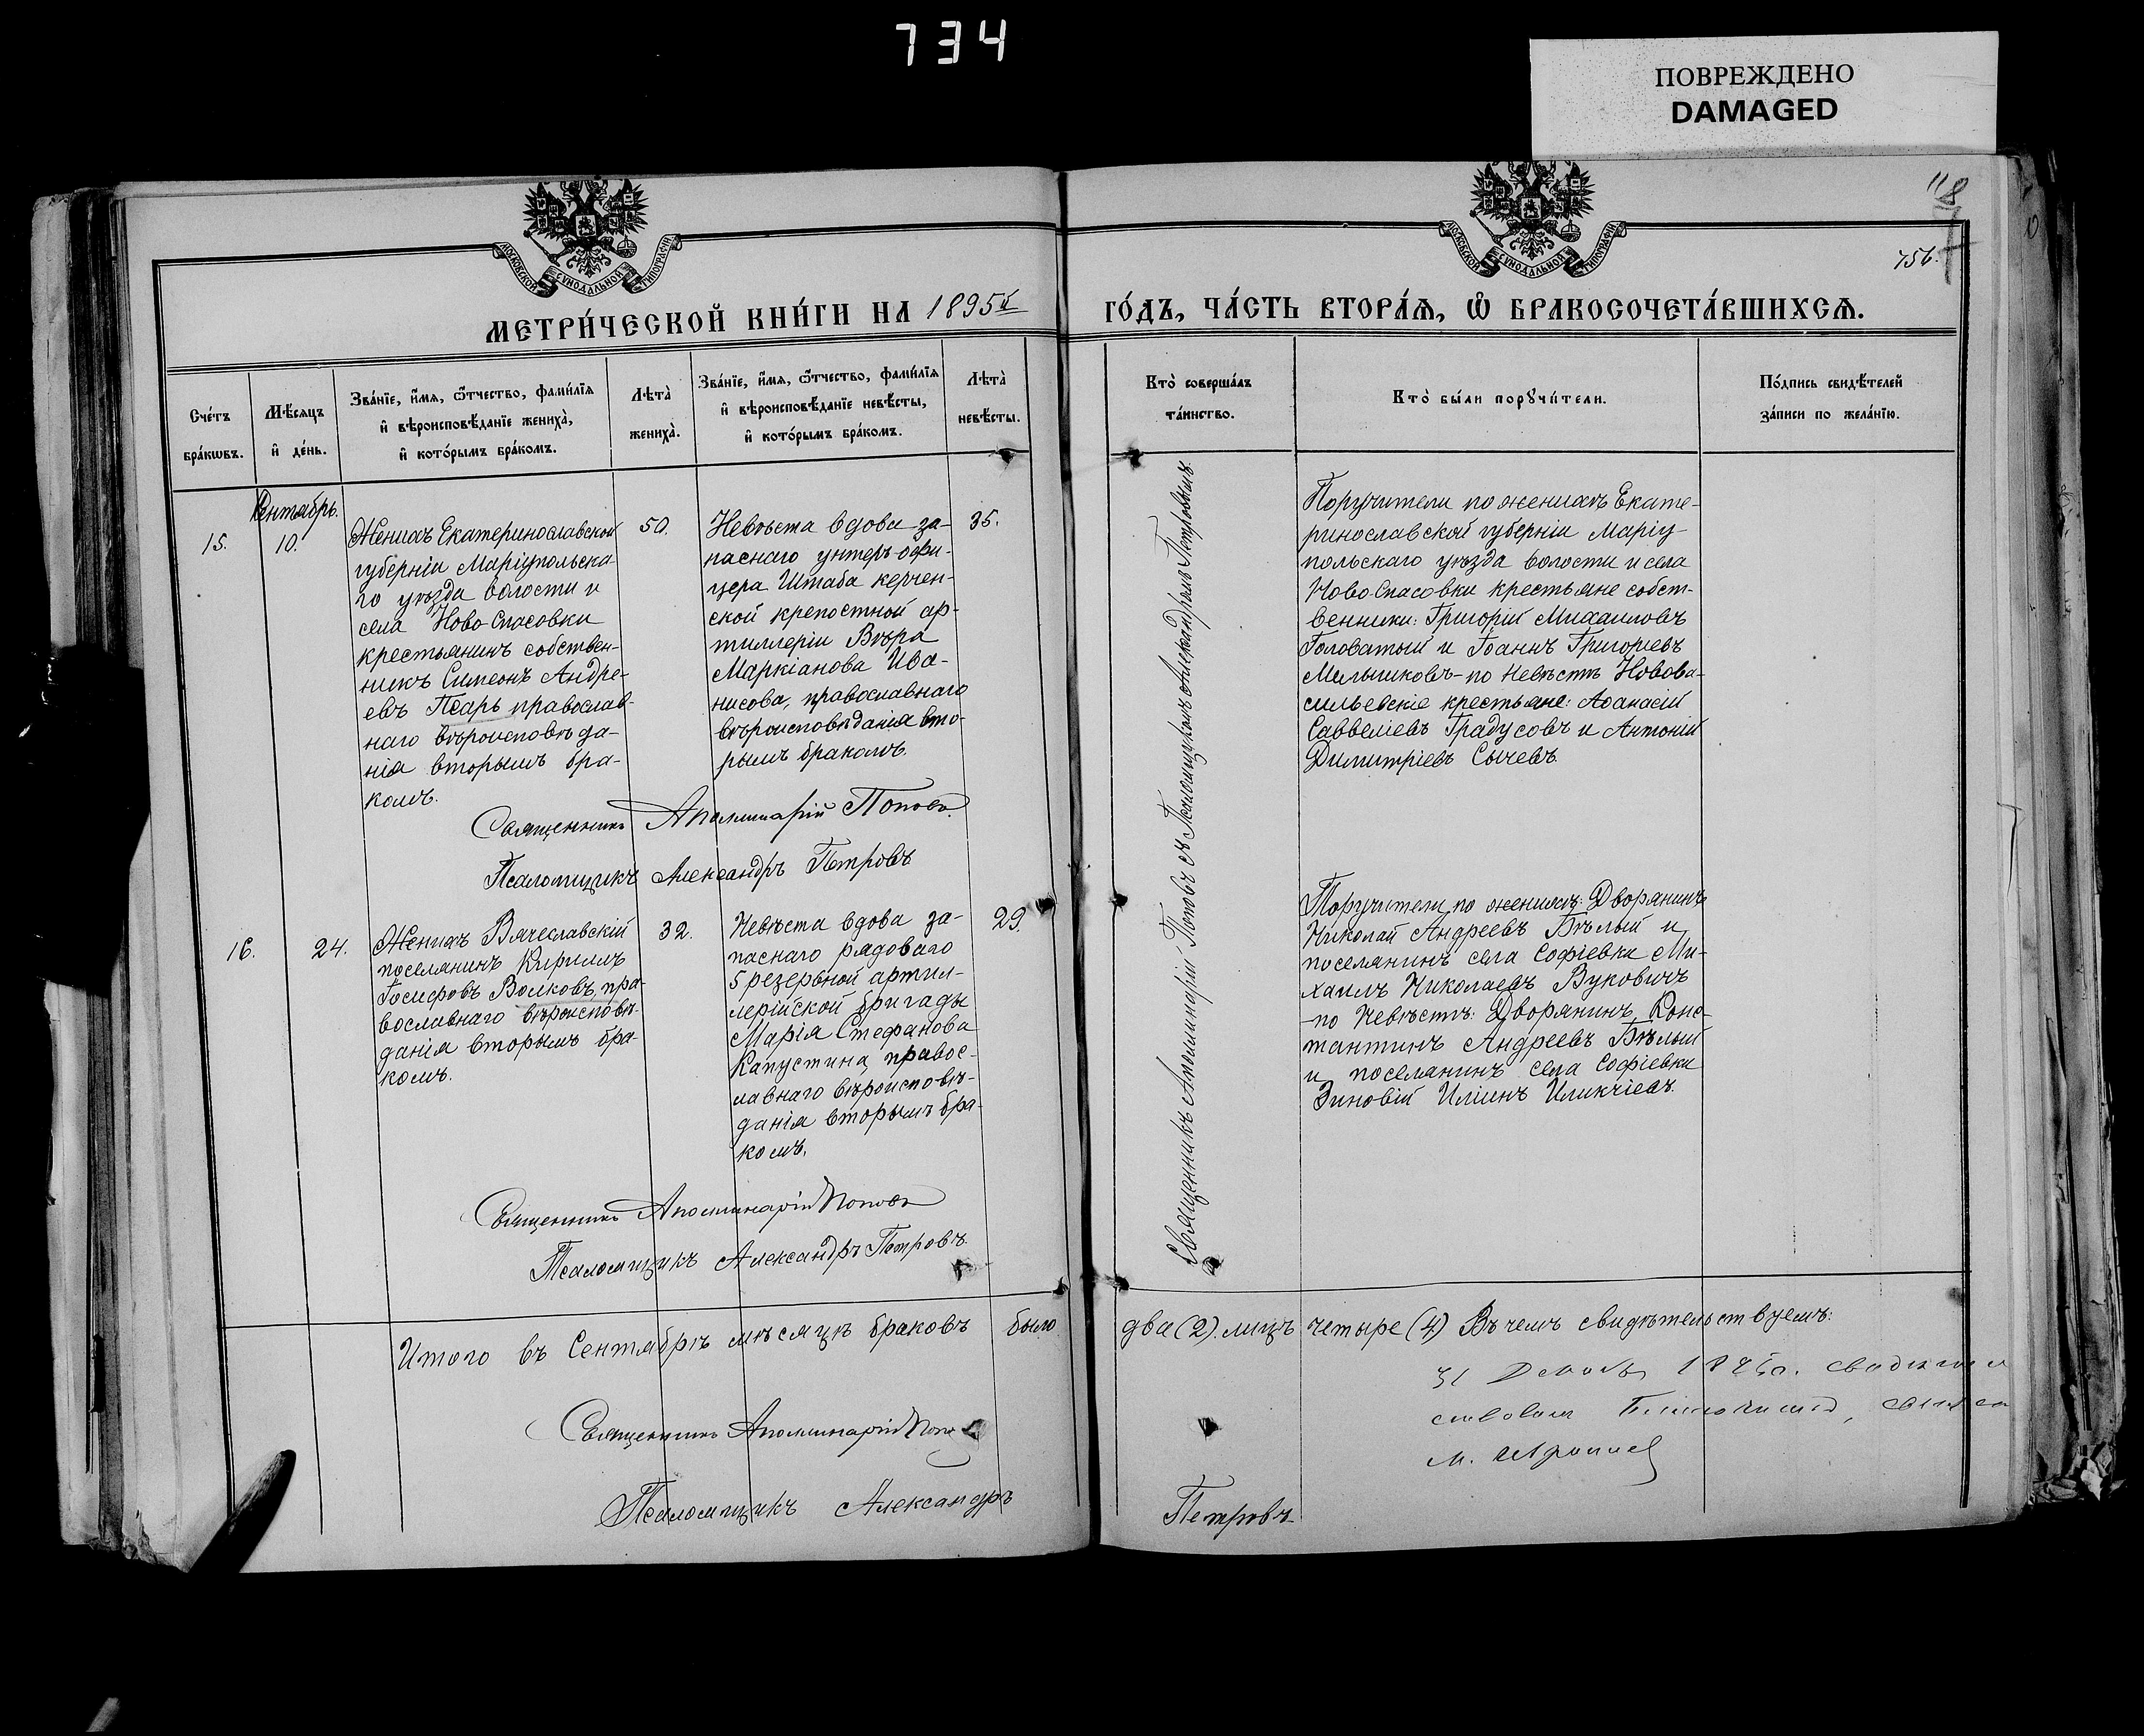 734
ПОВРЕЖДЕНО
DAMAGED
118
756.
МОСКОВСКОЙ СѴНОДАЛЬНОЙ ТИПОГРАФІИ
МОСКОВСКОЙ СѴНОДАЛЬНОЙ ТИПОГРАФІИ
МЕТРИ́ЧЕСКОЙ КНИ́ГИ НА 1895й
ГО́ДЪ, ЧА́СТЬ ВТОРА́Ѧ, Ѽ БРАКОСОЧЕТА́ВШИХСѦ.
Сче́тъ
бра́кѡвъ.
Мѣ́сяцъ
и҆ де́нь.
Зва́нїе, и҆́мя, ѻ҆́тчество, фами́лїя
и҆ вѣроисповѣ́данїе жениха̀,
и҆ кото́рымъ бра́комъ.
Лѣта̀
жениха̀.
Зва́нїе, и҆́мя, ѻ҆́тчество, фами́лїя
и҆ вѣроисповѣ́данїе невѣ́сты,
и҆ кото́рымъ бра́комъ.
Лѣта̀
невѣ́сты.
Кто̀ соверша́лъ
та́инство.
Кто̀ бы́ли порꙋчи́тели.
По́дпись свидѣ́телей
за́писи по жела́нїю.
Сентябрь.
15.
10.
Женихъ Екатеринославской
губерніи Маріупольска-
го уѣзда волости и
села Ново-Спасовки
крестьянинъ собствен-
никъ Симеонъ Андре-
евъ Псарь православ-
наго вѣроисповѣда-
нія вторымъ бра-
комъ.
50.
Невѣста вдова за-
паснаго унтеръ-офи-
цера Штаба керчен-
ской крепостной ар-
тиллеріи Вѣра
Маркіанова Ива-
нисова, православнаго
вѣроисповѣданія вто-
рымъ бракомъ.
35.
Священникъ Аполлинарій Поповъ.
Псаломщикъ Александръ Петровъ
Священникъ Аполлинарій Поповъ съ Псаломщикомъ Александромъ Петровымъ.
Поручители по женихѣ Екате-
ринославской губерніи Маріу-
польскаго уѣзда волости и села
Ново-Спасовки крестьяне собст-
венники: Григорій Михаиловъ
Головатый и Іоаннъ Григоріевъ
Мельниковъ - по Невѣстѣ Новова-
сильевскіе крестьяне: Аѳанасій
Саввеліевъ Градусовъ и Антоній
Димитріевъ Сычевъ.
16.
24.
Женихъ Вячеславскій
поселянинъ Кириллъ
Іосифовъ Волковъ, пра-
вославнаго вѣроисповѣ-
данія вторымъ бра-
комъ.
32.
Невѣста вдова за-
паснаго рядоваго
5 резервной артил-
лерійской бригады
Марія Стефанова
Капустина, правос-
лавнаго вѣроисповѣ-
данія вторымъ бра-
комъ.
29.
Священникъ Аполлинарій Поповъ
Псаломщикъ Александръ Петровъ.
Поручители по женихѣ: Дворянинъ
Николай Андреевъ Бѣлый и
поселянинъ села Софіевки Ми-
хаилъ Николаевъ Вуковичъ
-по Невѣстѣ: Дворянинъ Конс-
тантинъ Андреевъ Бѣлый
и поселянинъ села Софіевки
Зиновій Иліинъ Иликчіевъ.
Итого въ Сентябрѣ мѣсяцѣ браковъ было два (2). лицъ четыре (4) Въ чемъ свидѣтельствуемъ:
Священникъ Аполлинарій Попо
31
Псаломщикъ Александръ Петровъ